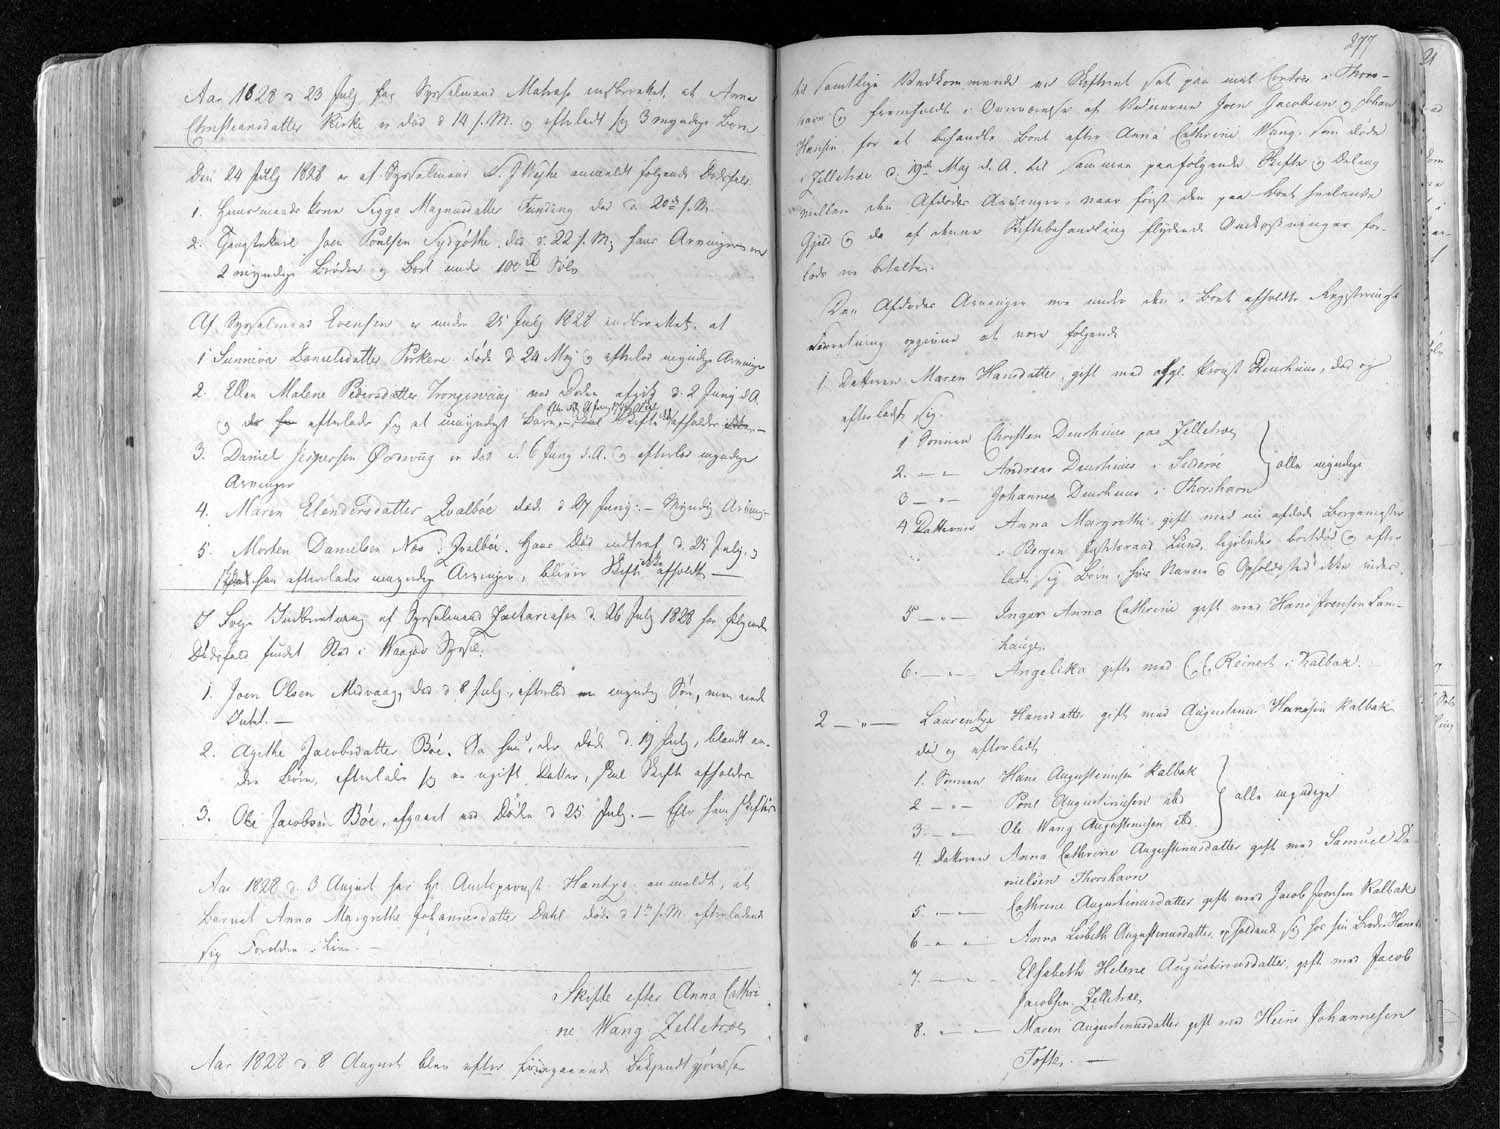 Aar 1828 d 23 July har Sysselmand Matras indberettet, at Anna
Christiansdatter Kirke er død d 14 s. M. og efterladt sig 3 myndige Børn
Den 24 July 1828 er af Sysselmand S. J. Weyhe anmeldt følgende Dødsfald:
1. Huusmands Kone Sigga Magnusdatter Funding død d. 20de s. M.
2. Gaugtkarl Joen Poulsen Sydgøthe død d. 22 s. M; hans Arvinger ere
2 myndige Brødre og Boet under 100 rd Sølv
Af Sysselmand Evensen er under 25 July 1828 indberettet, at
1 Sunniva Danielsdatter Porkere døde d 24 Maj og efterlod myndige Arvinger
2. Ellen Malene Pedersdatter Trongisvaag ved Døden afgik d. 2 Juny d. A.
og efterlade sig et umyndigt Barn, Skifte afholdes
3. Daniel Jespersen Øredevig er død d. 6 Juny d. A. og efterlod myndige
Arvinger
4. Maren Elendersdatter Qvalbøe død d 27 Juny. — Myndig Arving —
5. Morten Danielsen Nes i Qvalbøe. Hans Død indtraf d. 25 July, og
han efterlader myndige Arvinger, bliver Skifte ikke afholdt —
I Følge Indberetning af Sysselmand Zachariasen d. 26 July 1828 har følgende
Dødsfald fundet Sted i Waagøe Syssel:
1. Joen Olsen Midvaag, død d 8 July, efterlod en myndig Søn, men eied
Intet. —
2. Agethe Jacobsdatter Bøe. Da hun, der døde d. 19 July, blandt an-
dre Børn, efterlader sig en ugift Datter, skal Skifte afholdes
3. Ole Jacobsen Bøe, afgaaet ved Døden d 25 July. — Efter ham skiftes
Aar 1828 d. 3 August har Hr. Amtsprovst Hentze anmeldt, at
Barnet Anna Margrethe Johannesdatter Dahl døde d 1ste s. M. efterladende
sig Forældre i Live. —
Skifte efter Anna Cathri-
ne Wang Zelletræe
Aar 1828 d. 8 August blev efter foregaaende Bekjendtgjørelse
277
til samtlige Vedkommende en Skifteret sat paa mit Contoir i Thors-
havn og fremholdt i Overværelse af Vidnerne Joen Jacobsen og Johan
Hansen for at behandle Boet efter Anna Cathrine Wang, som døde
i Zelletræe d. 19de Maj d. A. til sammes paafølgende Skifte og Deling
mellem den Afdødes Arvinger, naar først den paa Boet heftende
Gjeld og de af denne Skiftebehandling flydende Omkostninger for-
lods ere betalte.
Den Afdødes Arvinger ere under den i Boet afholdte Registrerings
Forretning opgivne at være følgende
1. Datteren Maren Hansdatter, gift med afgl. Provst Deurhuus, død og
efterladt sig.
1 Sønnen Christen Deurhuus paa Zelletræe
2. — " — Andreas Deurhuus i Suderøe
3 — " — Johannes Deurhuus i Thorshavn
alle myndige
4 Datteren Anna Margrethe, gift med nu afdøde Borgemester
i Bergen Justitsraad Lund, ligeledes bortdød og efter
ladt sig Børn, hvis Navne og Opholdssted ikke vides.
5 — " — Inger Anna Cathrine gift med Hans Joensen Lam-
hauge,
6. — " — Angelika gift med C. C. Reinert i Kalbak. —
2 — " — Laurentze Hansdatter gift med Augustinus Hansen Kalbak
død og efterladt
1. Sønnen Hans Augustinusen Kalbak
2 — " — Poul Augustinusen ibd
3. — " — Ole Wang Augustinusen ibd.
alle myndige
4. Datteren Anna Cathrine Augustinusdatter gift med Samuel Da-
nielsen Thorshavn
5. — " — Cathrine Augustinusdatter gift med Jacob Joensen Kalbak
6 — " — Anna Lisbeth Augustinusdatter, opholdende sig hos sin Broder Hans
7. — " — Elsebeth Helene Augustinusdatter, gift med Jacob
Jacobsen, Zelletræe,
8. — " — Maren Augustinusdatter gift med Heine Johannesen
Tofte. —